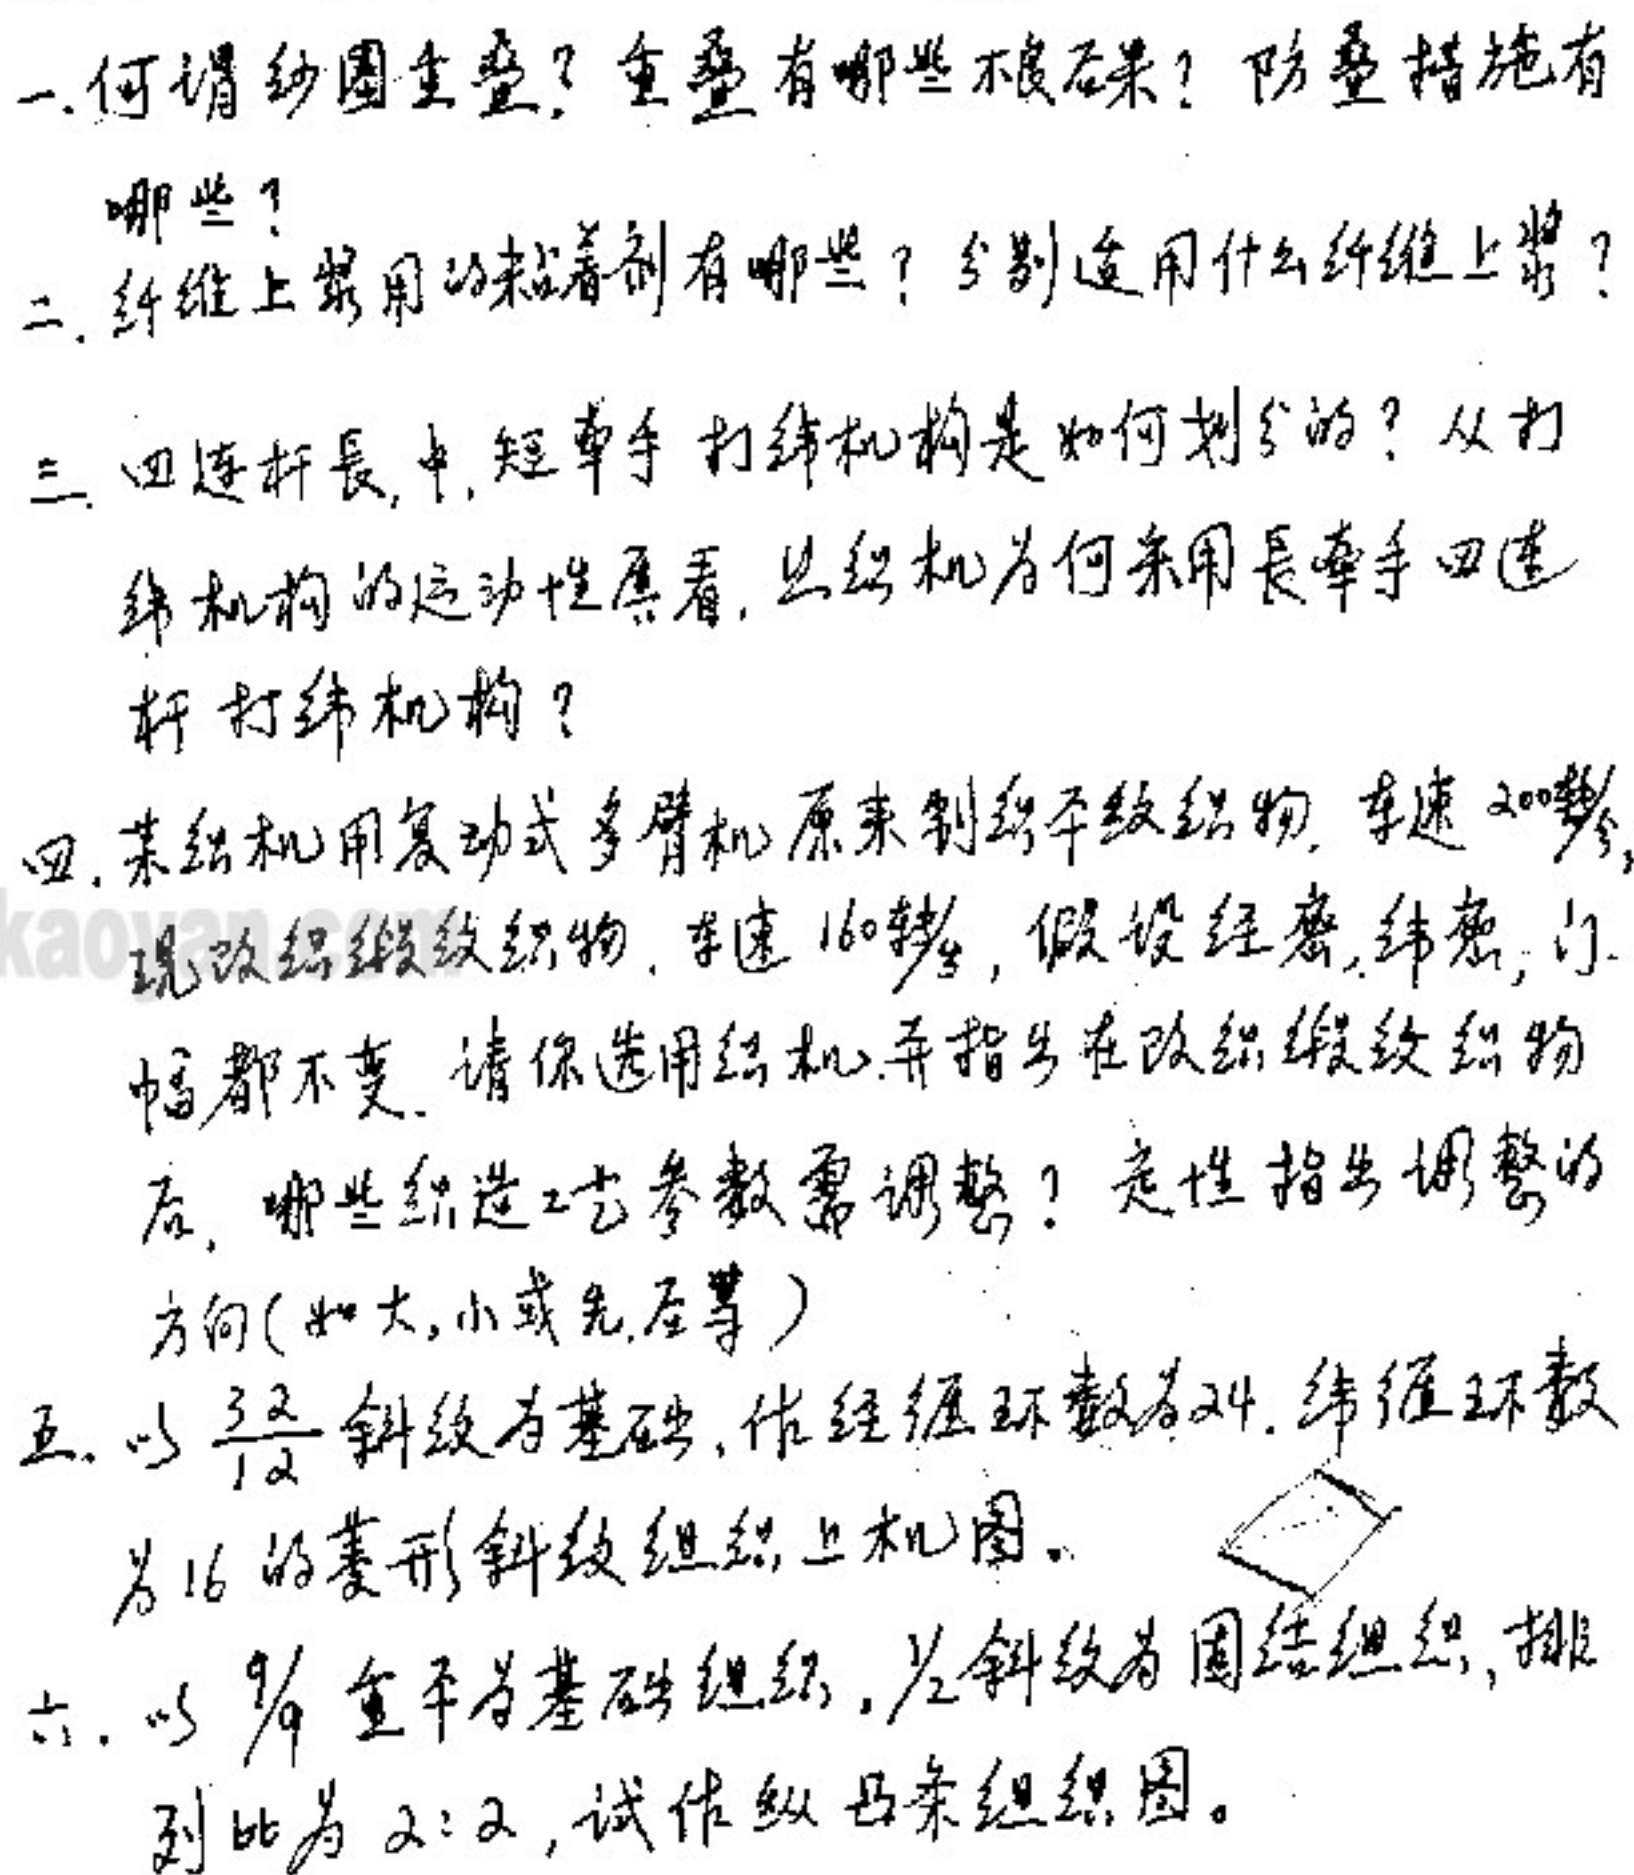 一.何谓纱圈重叠?重叠有哪些不良后果?防叠措施有
哪些?
二.纤维上浆用的粘着剂有哪些?分别适用什么纤维上浆?
三.四连杆長,中,短牵手打纬机构是如何划分的?从打
纬机构的运动性质看,丝织机为何采用長牵手四连
杆打纬机构?
四.某织机用复动式多臂机原来制织平纹织物,车速200转/分,
现改织缎纹织物,车速160转/分,假设经密,纬密,门
幅都不变.请你选用织机并指出在改织缎纹织物
后,哪些织造工艺参数需调整?定性指出调整的
方向(如大,小或先,后等)
kaoyan.com
五.以 3 2/1 2 斜纹为基础,作经循环数为24.纬循环数
为16的菱形斜纹组织上机图。
六.以9/9重平为基础组织,1/2斜纹为固结组织,排
列比为2:2,试作纵凸条组织图。